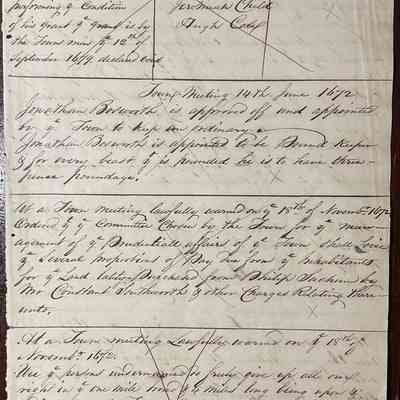 performing yͤ Condition
of his Grant yͤ grant is by
the Town men yͤ 12th of
September 1679 declared void
Jeremiah Child
Hugh Cole
Town Meeting 14th June 1672
Jonathan Bosworth is approved off and appointed
by yͤ Town to keep an ordinary
Jonathan Bosworth is appointed to be Pound Keeper
& for every beast yͭ is pounded he is to have three
pence poundage.
At a Town meeting lawfully warned on yͤ 18th of Novembr. 1672
Ordered yͭ yͤ Committee Chosen by the Town for yͤ man
agement of yͤ Prudentiall affairs of yͤ Town shall
yͤ several proportions of Pay due from yͤ Inhabitants
for yͤ Land lately Purchased from Philip Sachem by
Mr Constant Southworth & other Charges Relating there
unto.
At a Town meeting Lawfully warned on yͤ 18th of
Novembr. 1672.
We yͤ persons underwriten do freely give up all our
right in yͤ one mile broad & 2 miles long being upon yͤ